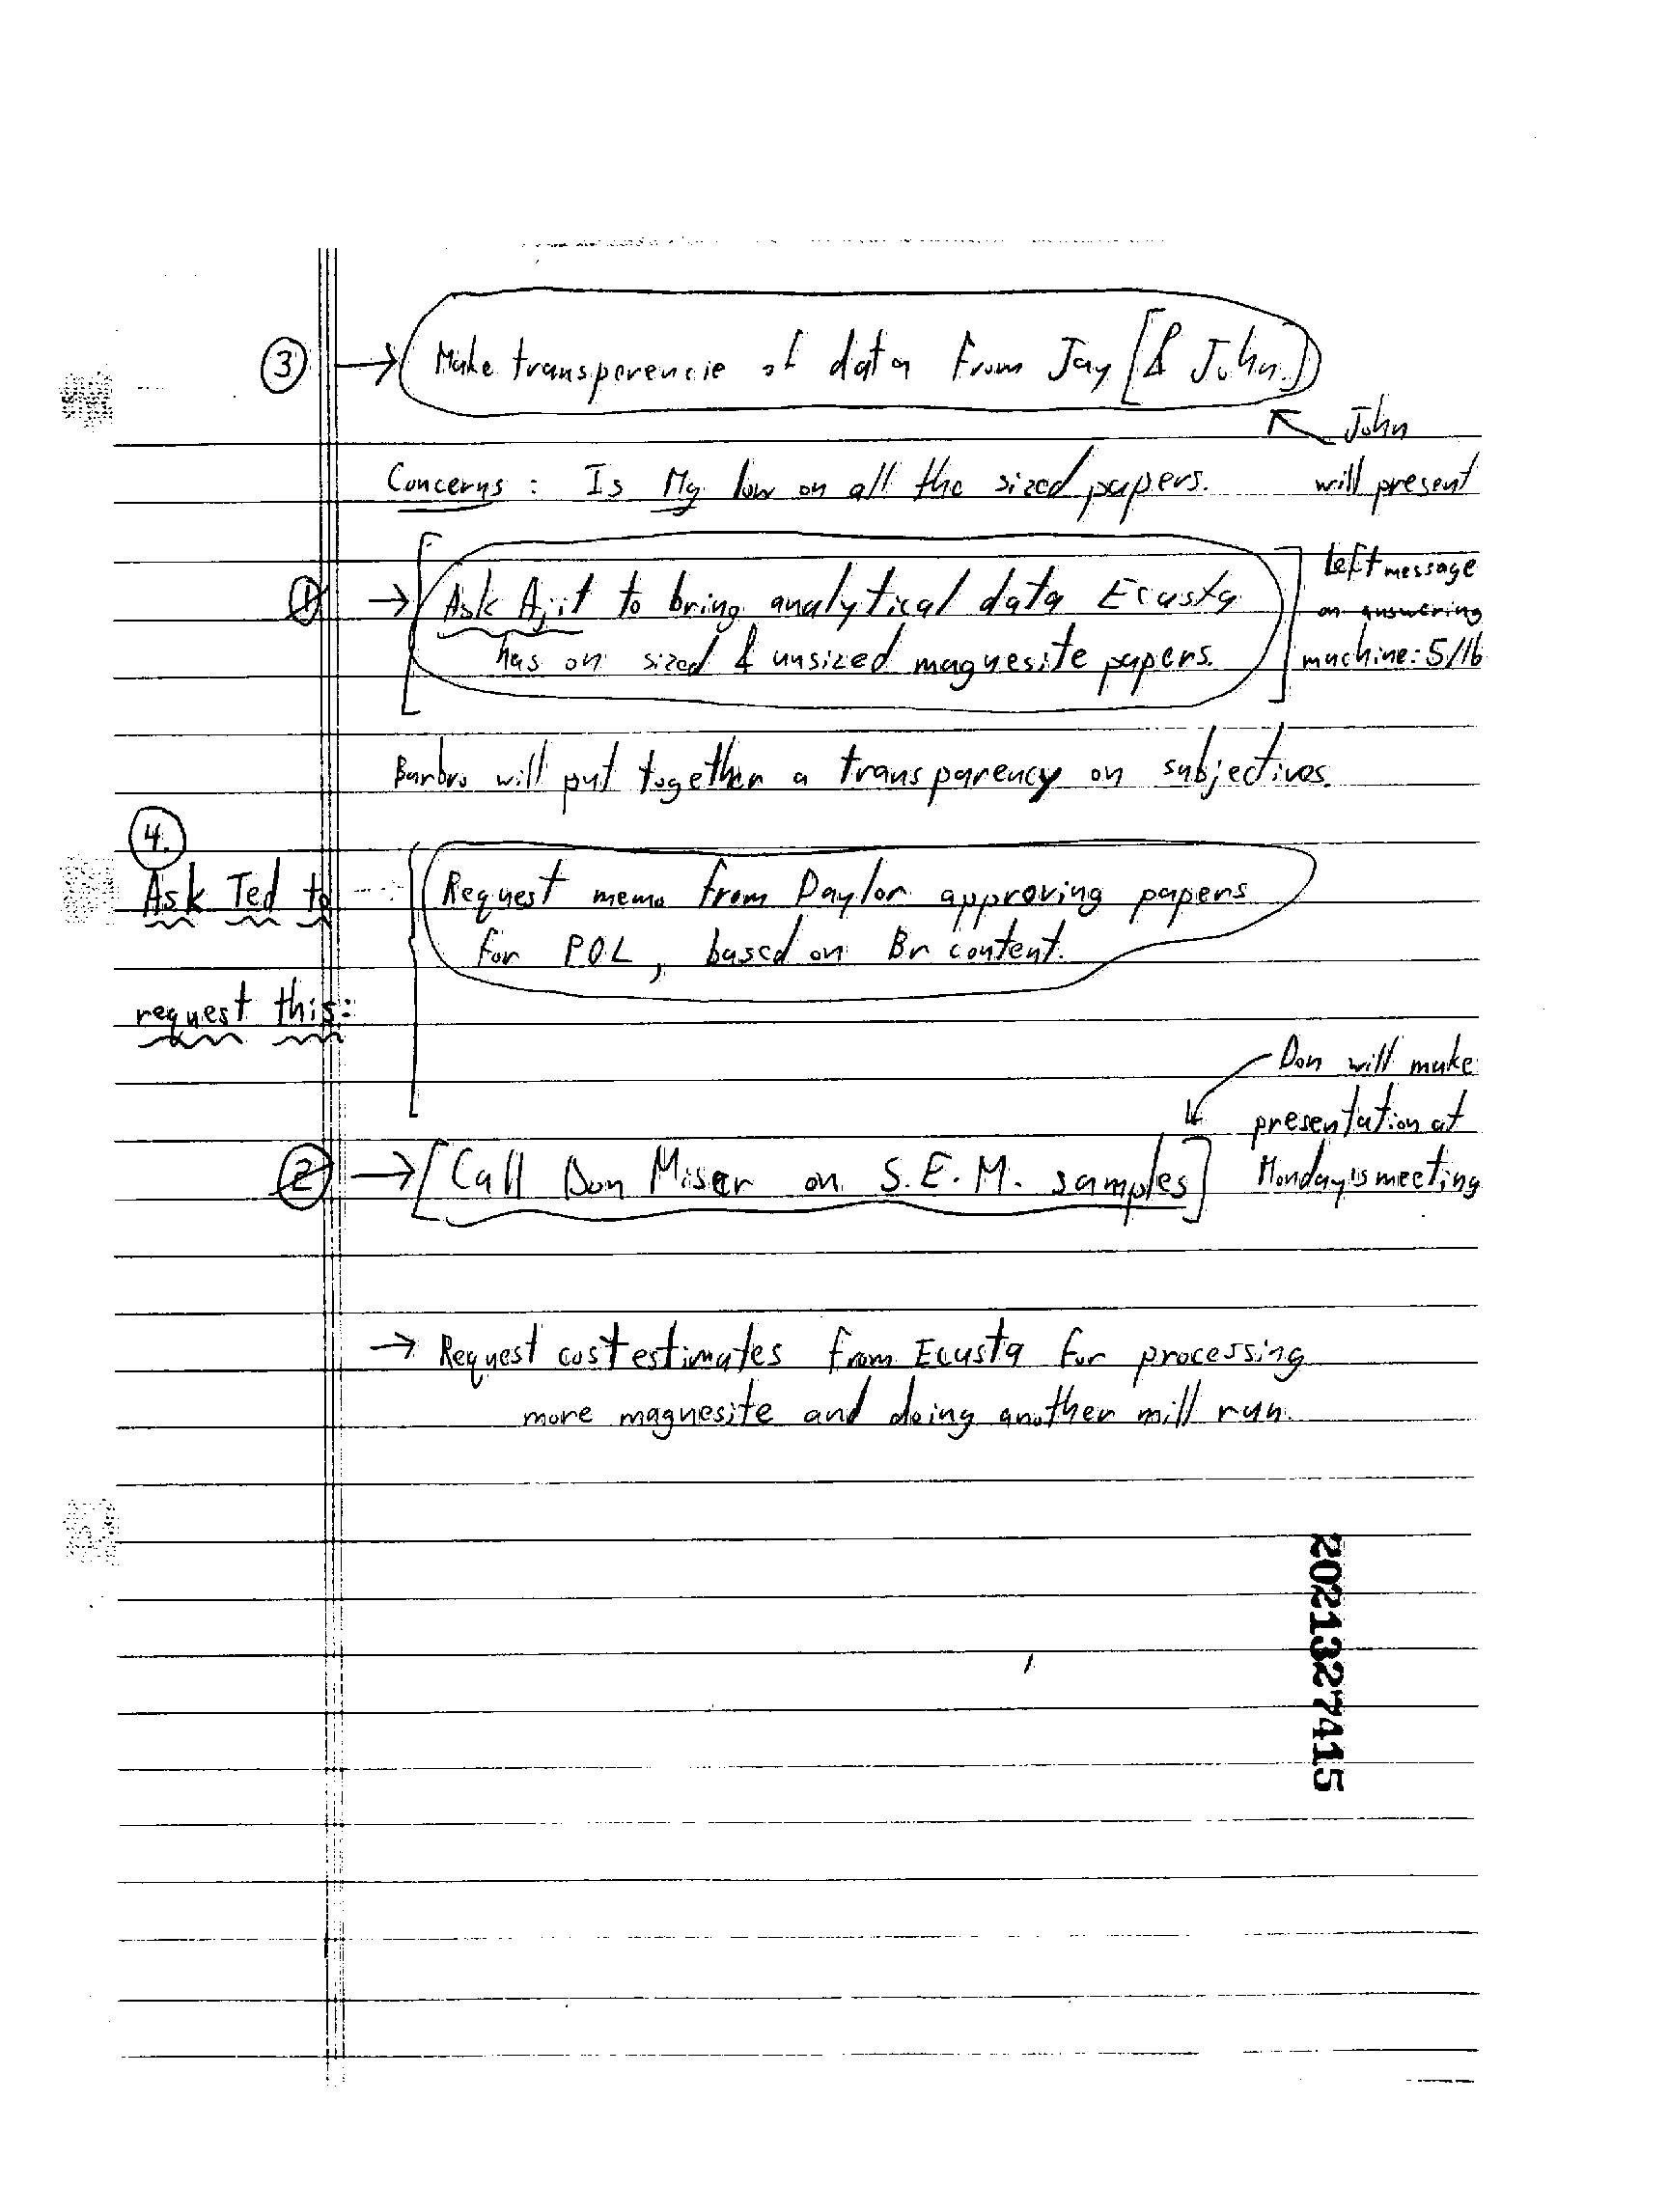 ③ → Make transparencie of data from Jay [& John.]
John
Concerns : Is Mg low on all the sized papers.
will present
① → [Ask Ajit to bring analytical data Ecusta
has on sized & unsized magnesite papers.]
Left message
on answering
machine: 5/16
Barbro will put together a transparency on subjectives.
4.
Ask Ted to
request this:
Request memo from Daylor approving papers
for POL, based on Br content.
Don will make
presentation at
Monday's meeting
② → [Call Don Miser on S.E.M. samples]
→ Request cost estimates from Ecusta for processing
more magnesite and doing another mill run.
2021327415